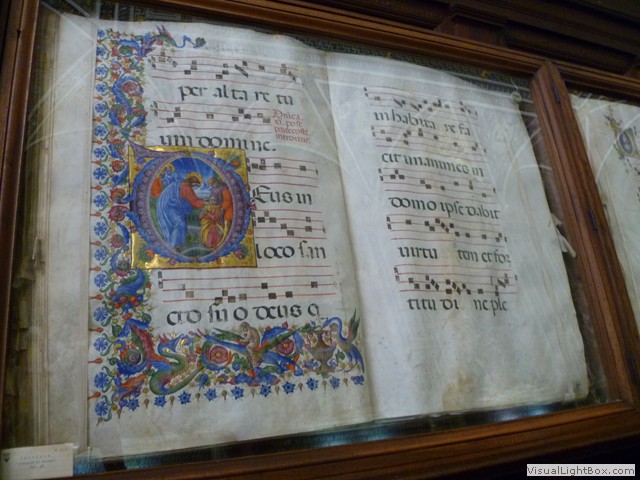 per alta re tu
um domine.
post
DEus in
loco san
cto su o deus q
inhabita re fa
cit unanimes in
domo ipse dabit
virtu tem et for
titu di ne ple
VisualLightBox.com